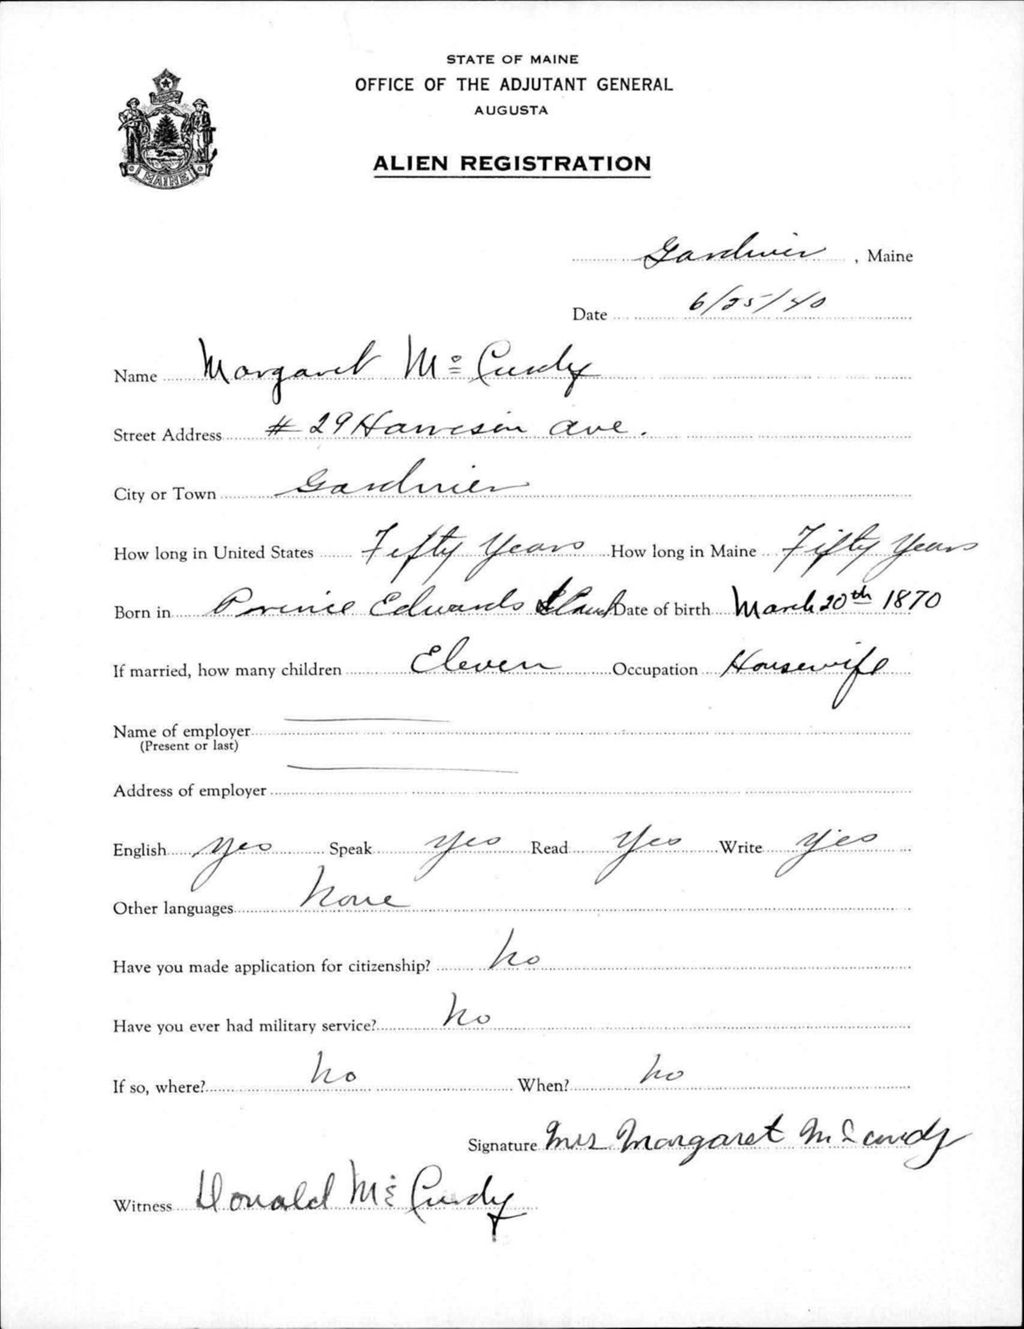 STATE OF MAINE
OFFICE OF THE ADJUTANT GENERAL
AUGUSTA
ALIEN REGISTRATION
MAINE
Gardiner, Maine
Date 6/25/40
Name Margaret Mc Curdy
Street Address # 29 Harrison Ave.
City or Town Gardiner
How long in United States Fifty Years How long in Maine Fifty Years
Born in Prince Edwards Date of birth March 20th 1870
If married, how many children Eleven Occupation Housewife
Name of employer
(Present or last)
Address of employer
English yes Speak yes Read yes Write yes
Other languages None
Have you made application for citizenship? No
Have you ever had military service? No
If so, where? No When? No
Signature Mrs Margaret McCurdy
Witness Donald Mc Curdy